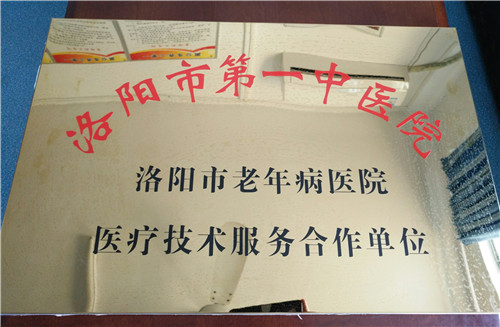 洛阳市第一中医院
洛阳市老年病医院
医疗技术服务合作单位